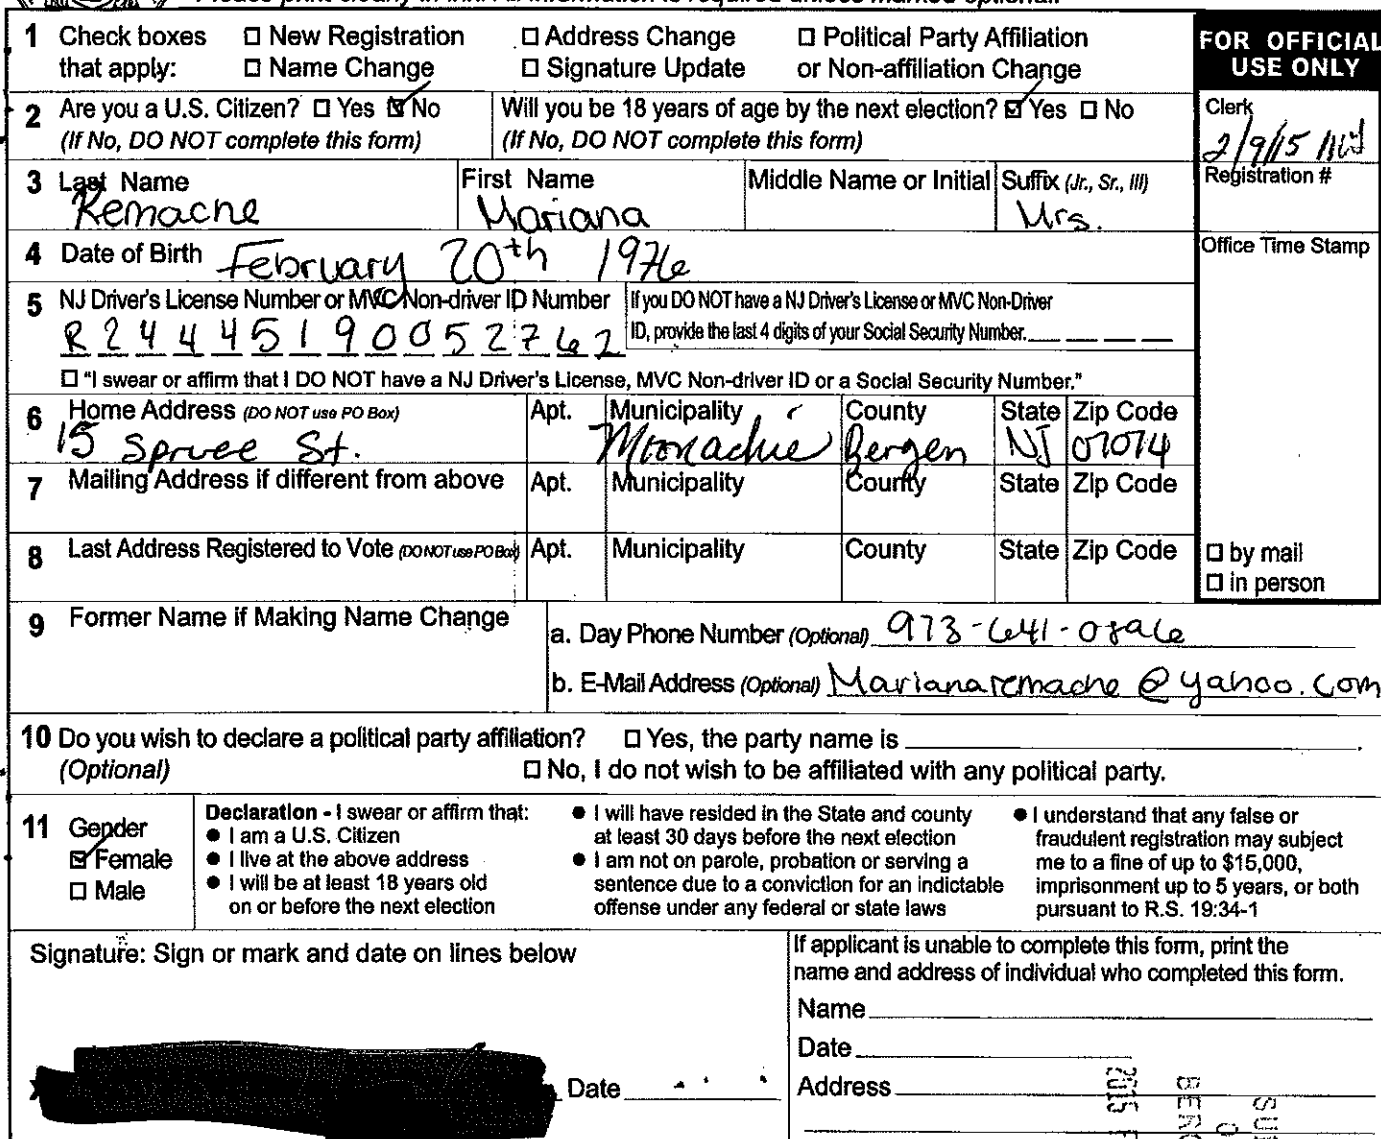 1 Check boxes that apply: ☐ New Registration ☐ Address Change ☐ Political Party Affiliation or Non-affiliation Change
☐ Name Change ☐ Signature Update
FOR OFFICIAL USE ONLY
2 Are you a U.S. Citizen? ☐ Yes ☑ No
(If No, DO NOT complete this form)
Will you be 18 years of age by the next election? ☑ Yes ☐ No
(If No, DO NOT complete this form)
Clerk
2/9/15
Registration #
3 Last Name First Name Middle Name or Initial Suffix (Jr., Sr., III)
Remache Mariana Mrs.
4 Date of Birth February 20th 1976
Office Time Stamp
5 NJ Driver's License Number or MVC Non-driver ID Number
R24445190052762
If you DO NOT have a NJ Driver's License or MVC Non-Driver
ID, provide the last 4 digits of your Social Security Number.
☐ "I swear or affirm that I DO NOT have a NJ Driver's License, MVC Non-driver ID or a Social Security Number."
6 Home Address (DO NOT use PO Box) Apt. Municipality County State Zip Code
15 Spruce St. Moonachie Bergen NJ 07074
7 Mailing Address if different from above Apt. Municipality County State Zip Code
8 Last Address Registered to Vote (DO NOT use PO Box) Apt. Municipality County State Zip Code
☐ by mail
☐ in person
9 Former Name if Making Name Change
a. Day Phone Number (Optional) 973-641-0826
b. E-Mail Address (Optional) Marianaremache@yahoo.com
10 Do you wish to declare a political party affiliation? ☐ Yes, the party name is
(Optional) ☐ No, I do not wish to be affiliated with any political party.
11 Gender
☑ Female
☐ Male
Declaration - I swear or affirm that:
● I am a U.S. Citizen
● I live at the above address
● I will be at least 18 years old
on or before the next election
● I will have resided in the State and county
at least 30 days before the next election
● I am not on parole, probation or serving a
sentence due to a conviction for an indictable
offense under any federal or state laws
● I understand that any false or
fraudulent registration may subject
me to a fine of up to $15,000,
imprisonment up to 5 years, or both
pursuant to R.S. 19:34-1
Signature: Sign or mark and date on lines below
Date
If applicant is unable to complete this form, print the
name and address of individual who completed this form.
Name
Date
Address
2015